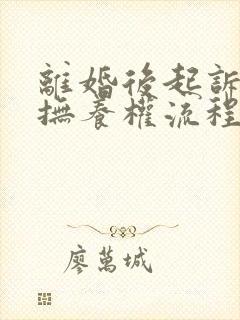 離婚後起訴
撫養權流程
廖萬城